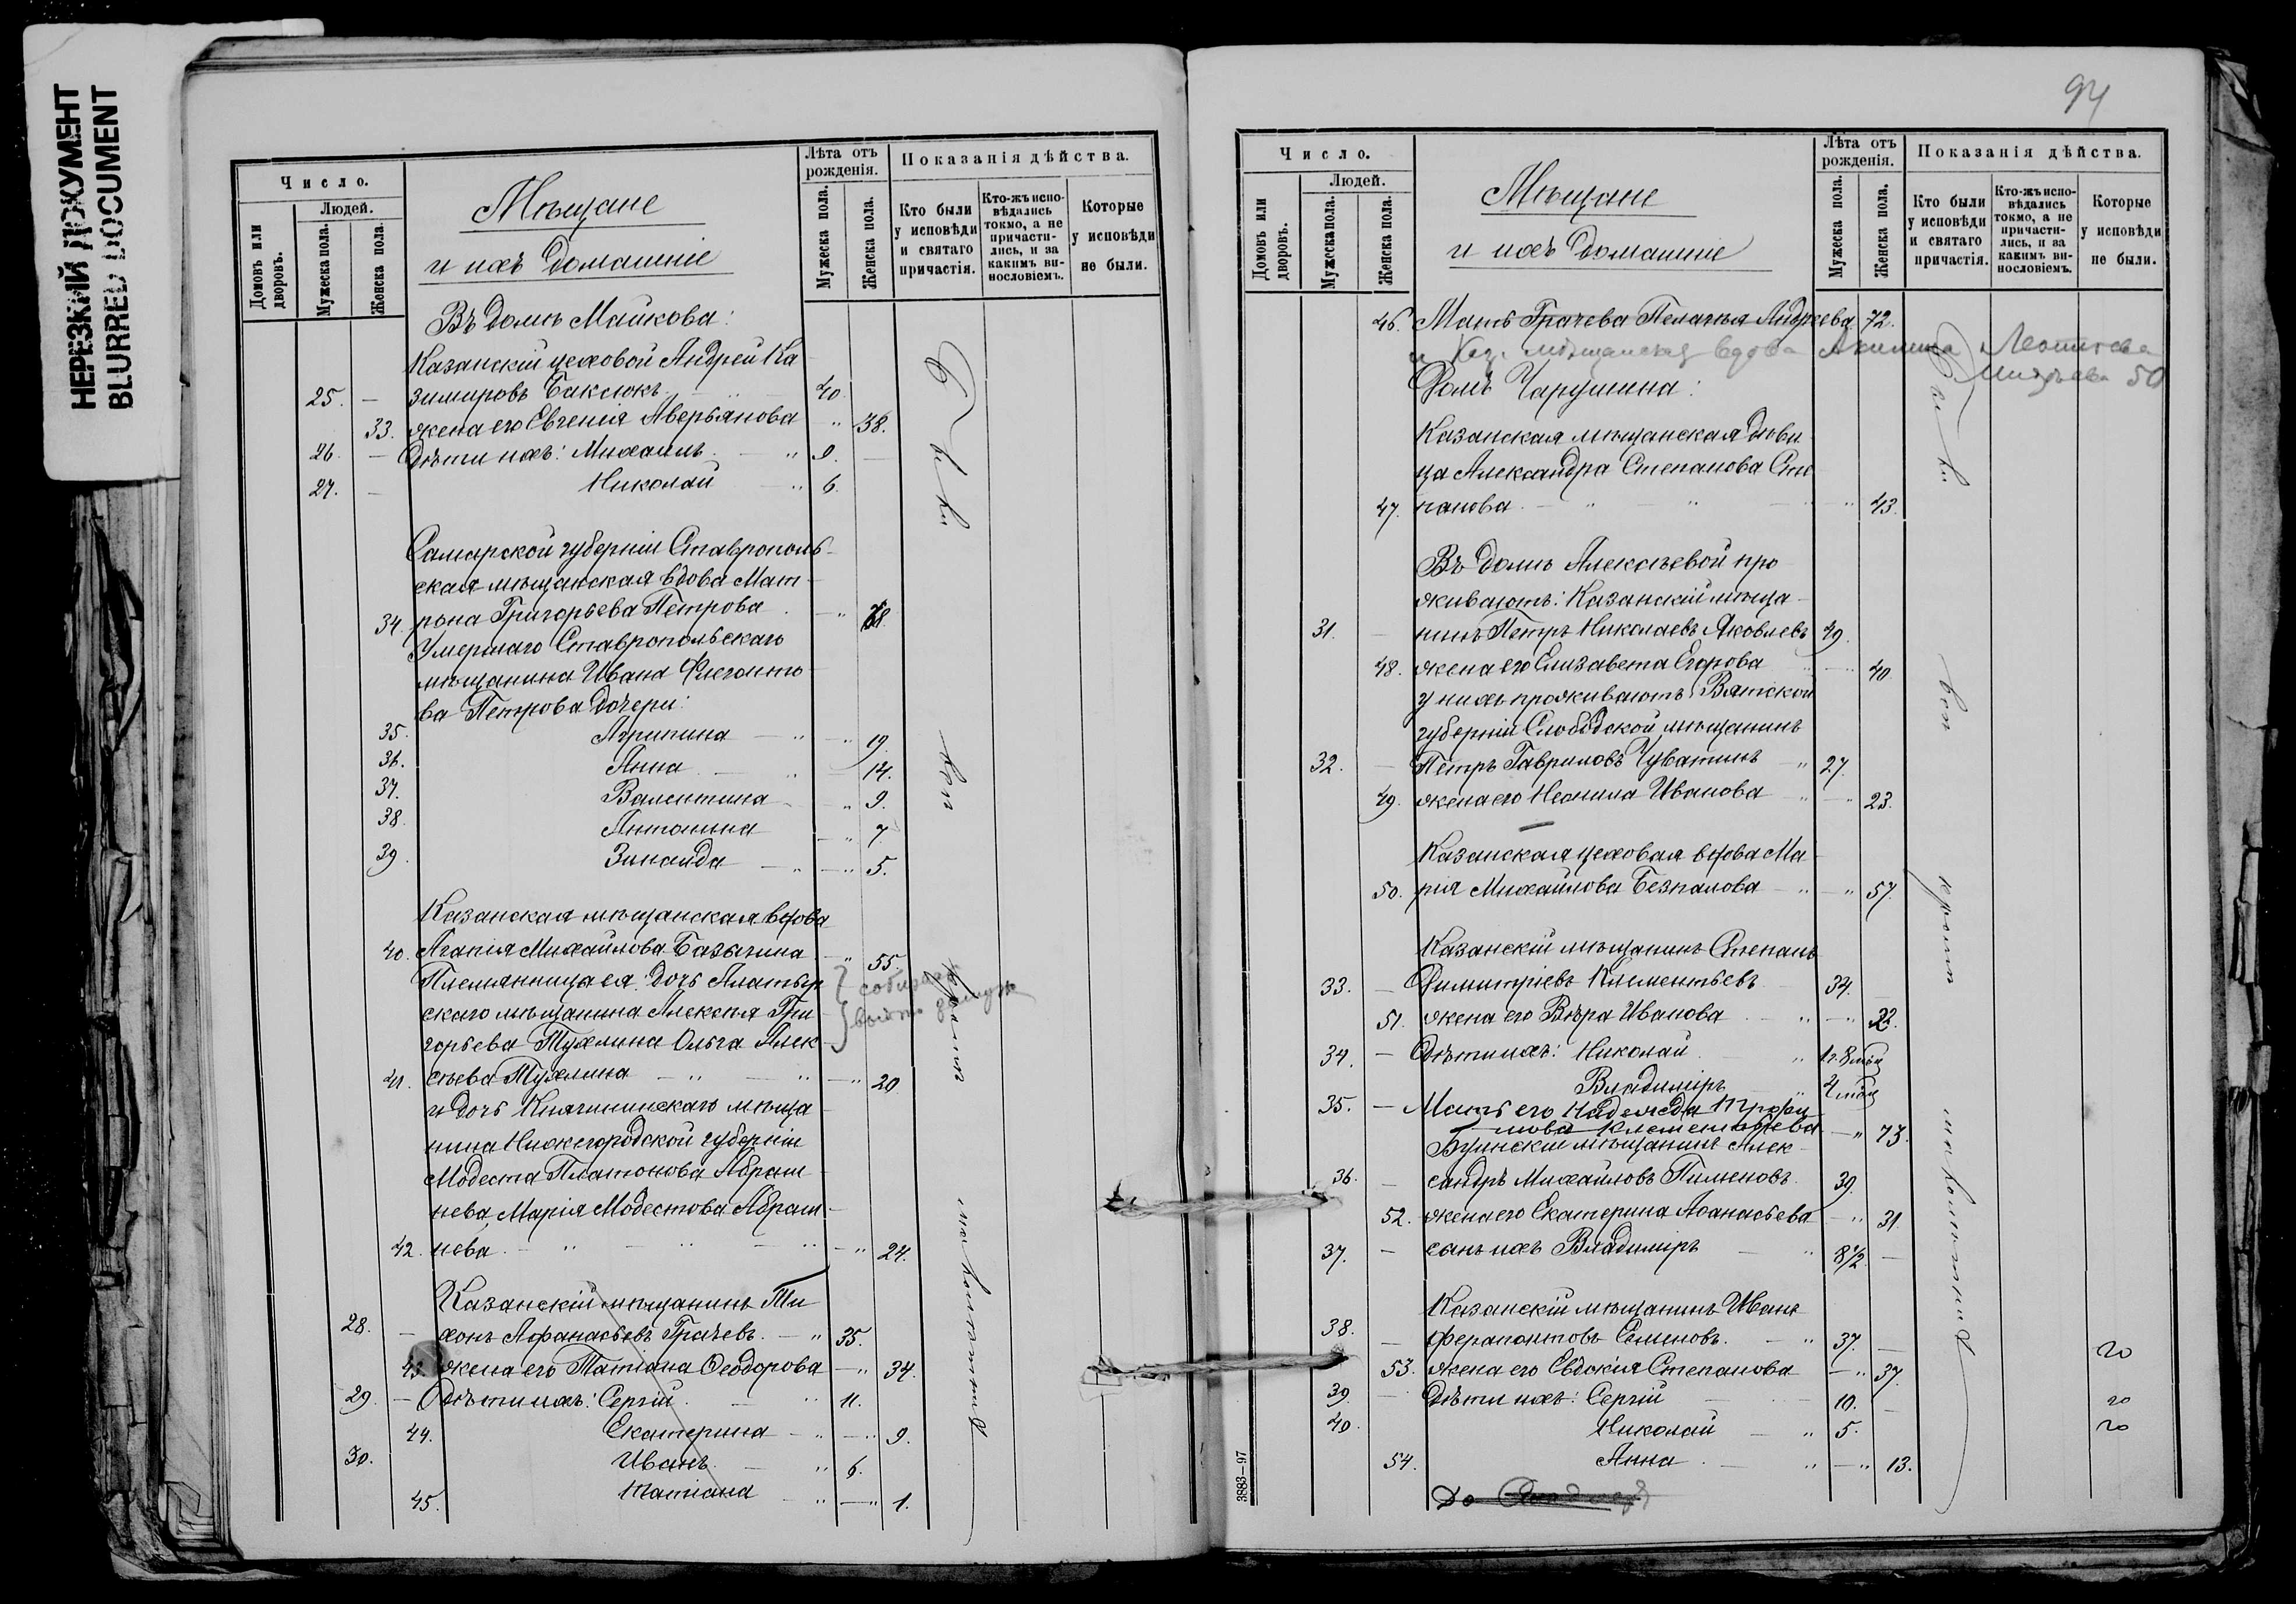 НЕРЕЗКИЙ ДОКУМЕНТ
BLURRED DOCUMENT
Число.
Людей.
Домовъ или дворовъ.
Мужеска пола.
Женска пола.
Мѣщане
и ихъ домашніе
Лѣта отъ рожденія.
Мужеска пола.
Женска пола.
Показанія дѣйства.
Кто были у исповѣди и святаго причастія.
Кто-жъ испо-
вѣдались
токмо, а не
причасти-
лись, и за
какимъ ви-
нословіемъ.
Которые у исповѣди не были.
Въ домѣ Майкова:
Казанскій цеховой Андрей Ка
25. — зимировъ Баклюкъ 40
33. жена его Евгенія Аверьянова " 38.
26. — Дѣти ихъ: Михаилъ " 9. —
27. — Николай " 6.
Самарской губерніи Ставрополь-
ская мѣщанская вдова Мат-
34. рона Григорьева Петрова — " 38
Умершаго Ставропольскаго
мѣщанина Ивана Флегонто-
ва Петрова дочери:
35. Агрипина — " — " 19.
36. Анна — " 14.
37. Валентина — " 9.
38. Антонина — " 7.
39. Зинаида — " — " 5.
Казанская мѣщанская вдова
40. Агапія Михайлова Базычина " 55
Племянницы ея: дочь Алатыр
скаго мѣщанина Алексѣя Гри-
горьева Тухлина Ольга Алек-
41. сѣева Тухлина — " — " — " 20
и дочь Княгининскаго мѣща-
нина Нижегородской губерніи
Модеста Платонова Абраш-
нева, Марія Модестова Абраш-
42. нева — " — " — " — " 24.
Казанскій мѣщанинъ Ти
28. — хонъ Афанасьевъ Грачевъ. — " 35.
43. жена его Татіана Ѳеодорова — " 34.
29. — Дѣти ихъ: Сергій — " 11.
44. Екатерина — " — " 9.
30. Иванъ — " 6.
45. Татіана — " — " 1.
замуж
Были
вси
кромѣ
94
Число.
Людей.
Домовъ или дворовъ.
Мужеска пола.
Женска пола.
Мѣщане
и ихъ домашніе
Лѣта отъ рожденія.
Мужеска пола.
Женска пола.
Показанія дѣйства.
Кто были у исповѣди и святаго причастія.
Кто-жъ испо-
вѣдались
токмо, а не
причасти-
лись, и за
какимъ ви-
нословіемъ.
Которые у исповѣди не были.
46. Мать Грачева Пелагья Андреева 72.
и Каз. мѣщанская вдова Акилина Леонтьева
50
Домъ Чарушина:
Казанская мѣщанская дѣви
ца Александра Степанова Сте
47. панова — " — " — " — " 43.
Въ домѣ Алексѣевой про
живаютъ: Казанскій мѣща-
31. — нинъ Петръ Николаевъ Яковлевъ 49.
48. жена его Елизавета Егорова — " 40
у нихъ проживаютъ Вятской
губерніи Слободской мѣщанинъ
32. — Петръ Гавриловъ Чуватинъ — " 27.
49. жена его Неонила Иванова " — " 23.
Казанская цеховая вдова Ма-
50. рія Михайлова Безпалова — " — " 57.
Казанскій мѣщанинъ Степанъ
33. — Димитріевъ Клементьевъ 34.
51. жена его Вѣра Иванова " — " 32.
34. — Дѣти ихъ: Николай " 1г. 8 мѣс
Владиміръ " 4 мѣс
35. — Мать его Надежда Трофи-
мова Клементьева — " 73.
Буинскій мѣщанинъ Алек-
36. — сандръ Михайловъ Пименовъ 39.
52. жена его Екатерина Аѳанасьева — " 31
37. — сынъ ихъ Владиміръ — " 8 1/2 —
Казанскій мѣщанинъ Иванъ
38. — Ферапонтовъ Семеновъ. — " 37. —
53. жена его Евдокія Степанова — " 37
39. — Дѣти ихъ: Сергій — 10. —
40. Николай — " 5.
54. Анна — " — " 13.
До
Были
вси
кромѣ
3883—97